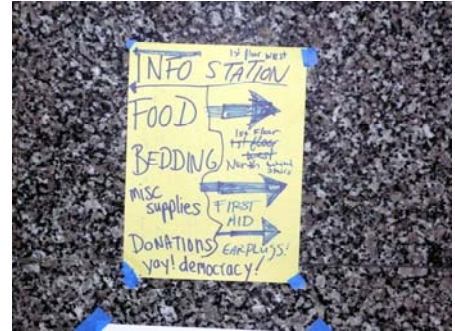 1st floor west
INFO STATION
FOOD
1st Floor
1st floor
west
BEDDING North behind
stairs
misc
supplies
FIRST
AID
DONATIONS EARPLUGS!
yay! democracy!